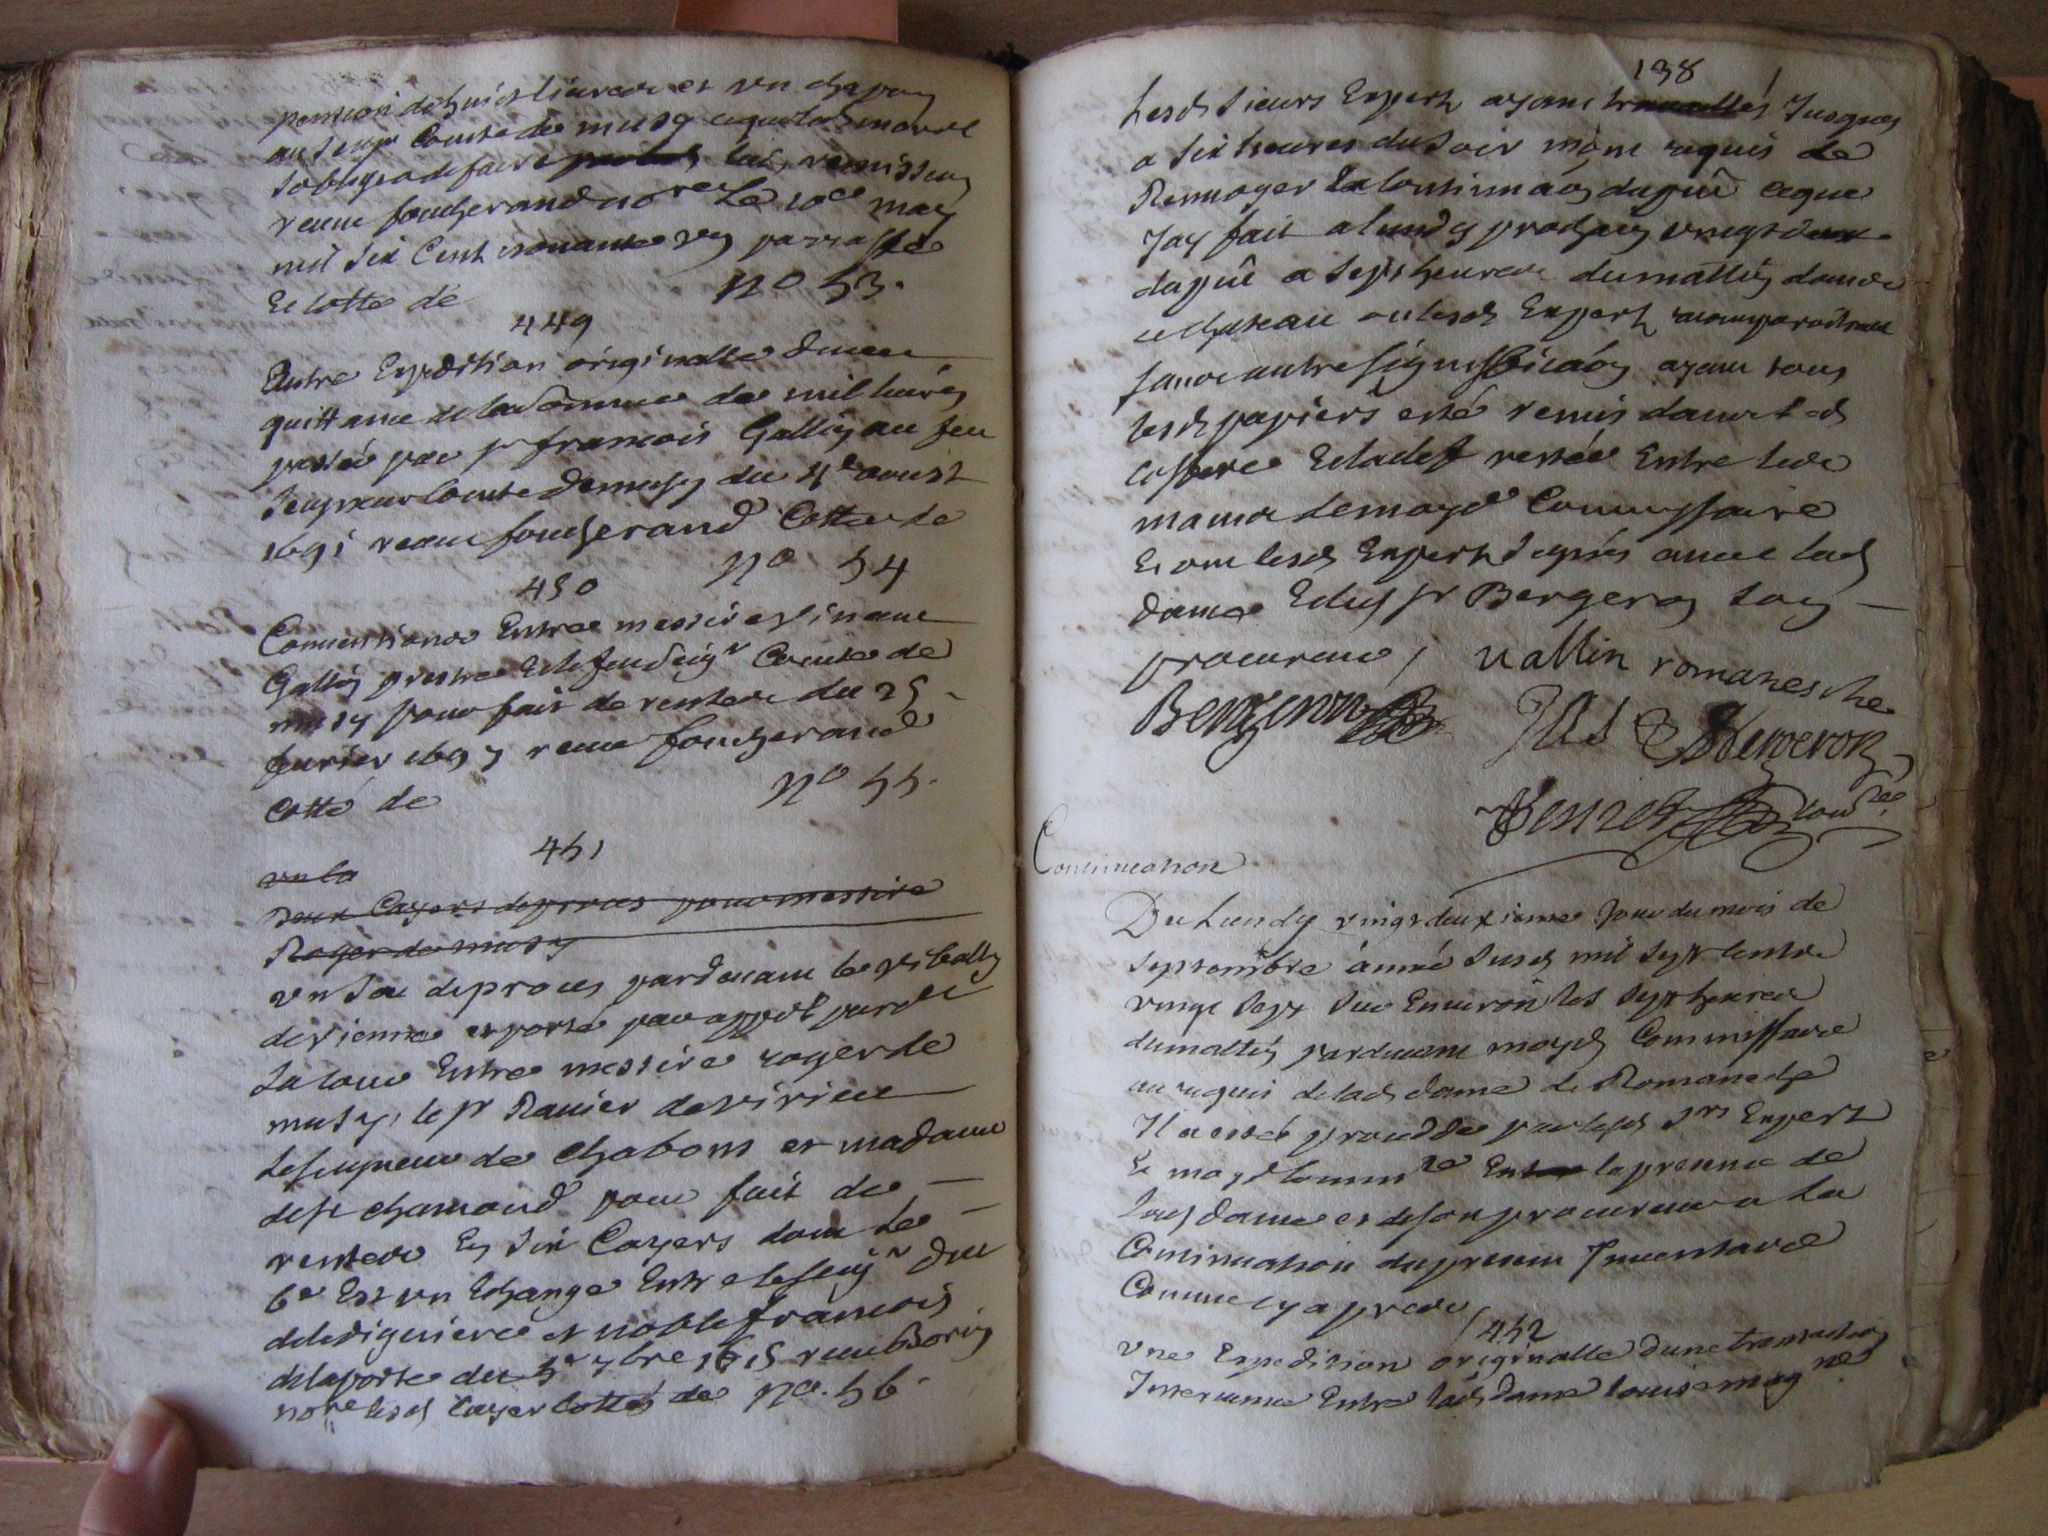 pention de huict livres et un chapon
au seigr Comte de musy laquelle
sobligea de faire
receu foucherand nore le 10e may
mil six Cent nonante un parraffé
Et cotté de n° 53.
449
Autre Expedition originalle dune
quittance de la somme de mil livres
passée par sr francois Gallin au feu
seigneur Comte de musy du 4e aoust
1691 receu foucherand Cottée de
n° 54
450
Conventions Entre messire vincent
Gallin prestre Et le feu seigr Comte de
musy pour fait de rentes du 25
feuvrier 1697 receu foucherand
Cotté de n° 55.
451
un la
deux Cayers de proces pour messire
Roger de musy
un sac de proces pardevant le vibally
de vienne et porté par appel pard
la cour Entre messire roger de
musy, le sr Ravier de virieu
le seigneur de Chabons et madame
de st chamond pour fait de
rentes En six Cayers dont le
6e Est un Echange Entre le seigr duc
de lediguieres et noble francois
delaporte du 5e 7bre 1615 receu Borin
nore lesd Cayers cottés de n°. 56.
138
Lesd sieurs Expertz ayant travaillés Jusques
a six heures du soir mont requis de
Renvoyer la continuaon du pnt ce que
Jay fait a lundy prochain vingt deux
du pnt a sept heures du mattin dans ce
chateau ou lesd Expertz racomparoitront
sans autre signiffication ayant tous
lesd papiers esté remis dans led
coffre Et la clef restée Entre les
mains de moyd Commissaire
Et ont lesd Expertz signés avec lad
dame Et led sr Bergeron son
procureur / vallin romanesche
Bergeron
Perret Comre
Continuation
Du Lundy vingt deuxieme Jour du mois de
septembre année susd mil sept centz
vingt sept sur Environ les sept heures
du mattin pardevant moyd Commissaire
au requis de lad dame de Romanesche
Il a esté procedé par lesd srs Expertz
Et moyd Commre En la presence de
lad dame et de son procureur a la
Continuation du present Inventaire
Comme cy apres /
452
Une Expedition originalle dune transaction
Intervenue Entre lad dame louise